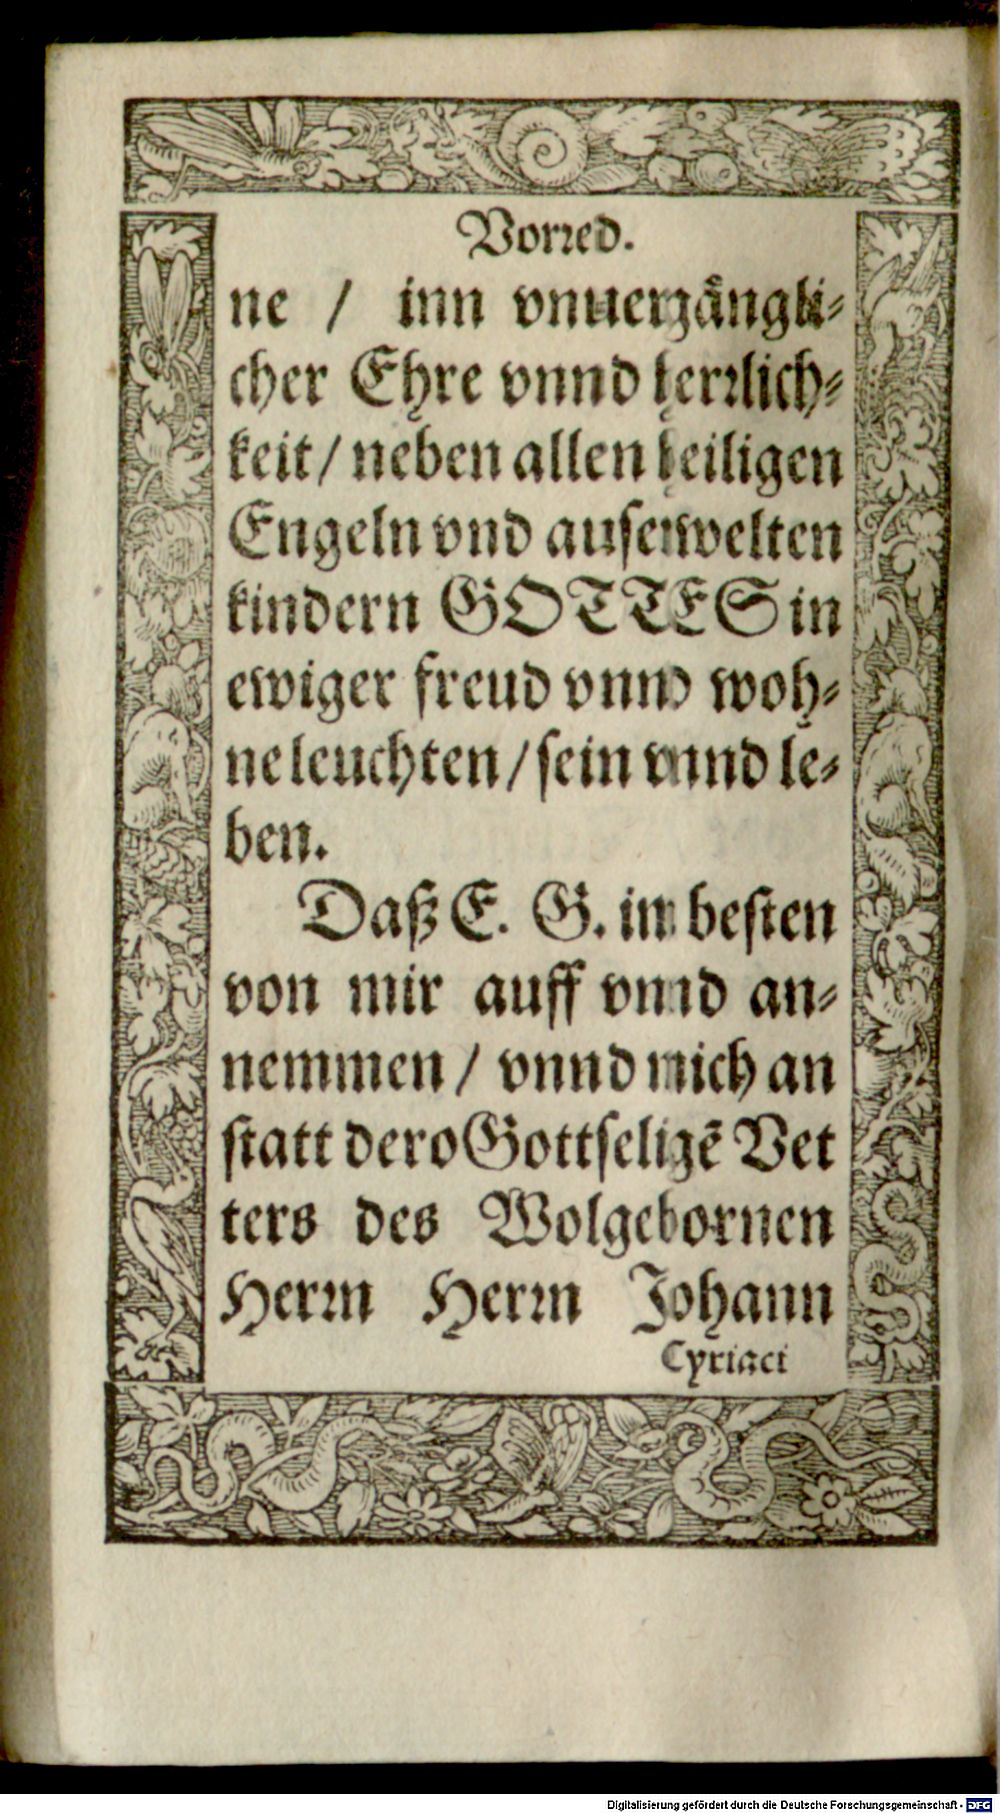 Vorred.
ne / inn vnuergångli-
cher Ehre vnnd herrlich-
keit / neben allen heiligen
Engeln vnd auserwelten
kindern GOTTES in
ewiger freud vnnd woh-
ne leuchten / sein vnnd le-
ben.
Daß E. G. im besten
von mir auff vnnd an-
nemmen / vnnd mich an
statt dero Gottseligē Vet
ters des Wolgebornen
Herrn Herrn Johann
Cyriaci
Digitalisierung gefördert durch die Deutsche Forschungsgemeinschaft - DFG